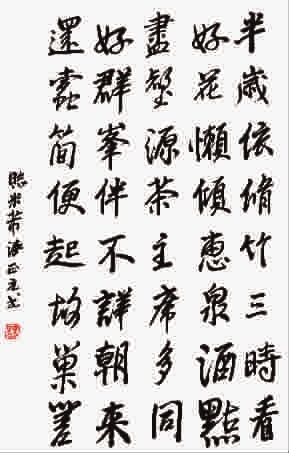 半歲依脩竹三時看
好花懶傾惠泉酒點
盡壑源茶主席多同
好群峯伴不譁朝來
還蠹簡便起故巢嗟
臨米芾